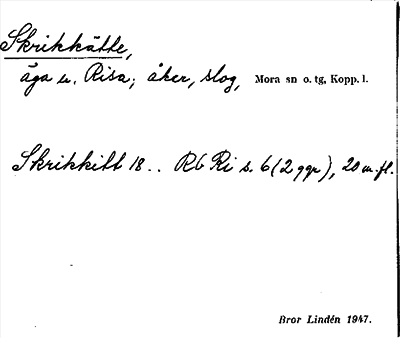 Skrikkätte,
äga u. Risa; åker, slog, Mora sn o. tg, Kopp. l.
Skrikkitt 18.. Rb Ri s. 6 (2 ggr), 20 m. fl.
Bror Lindén 1947.